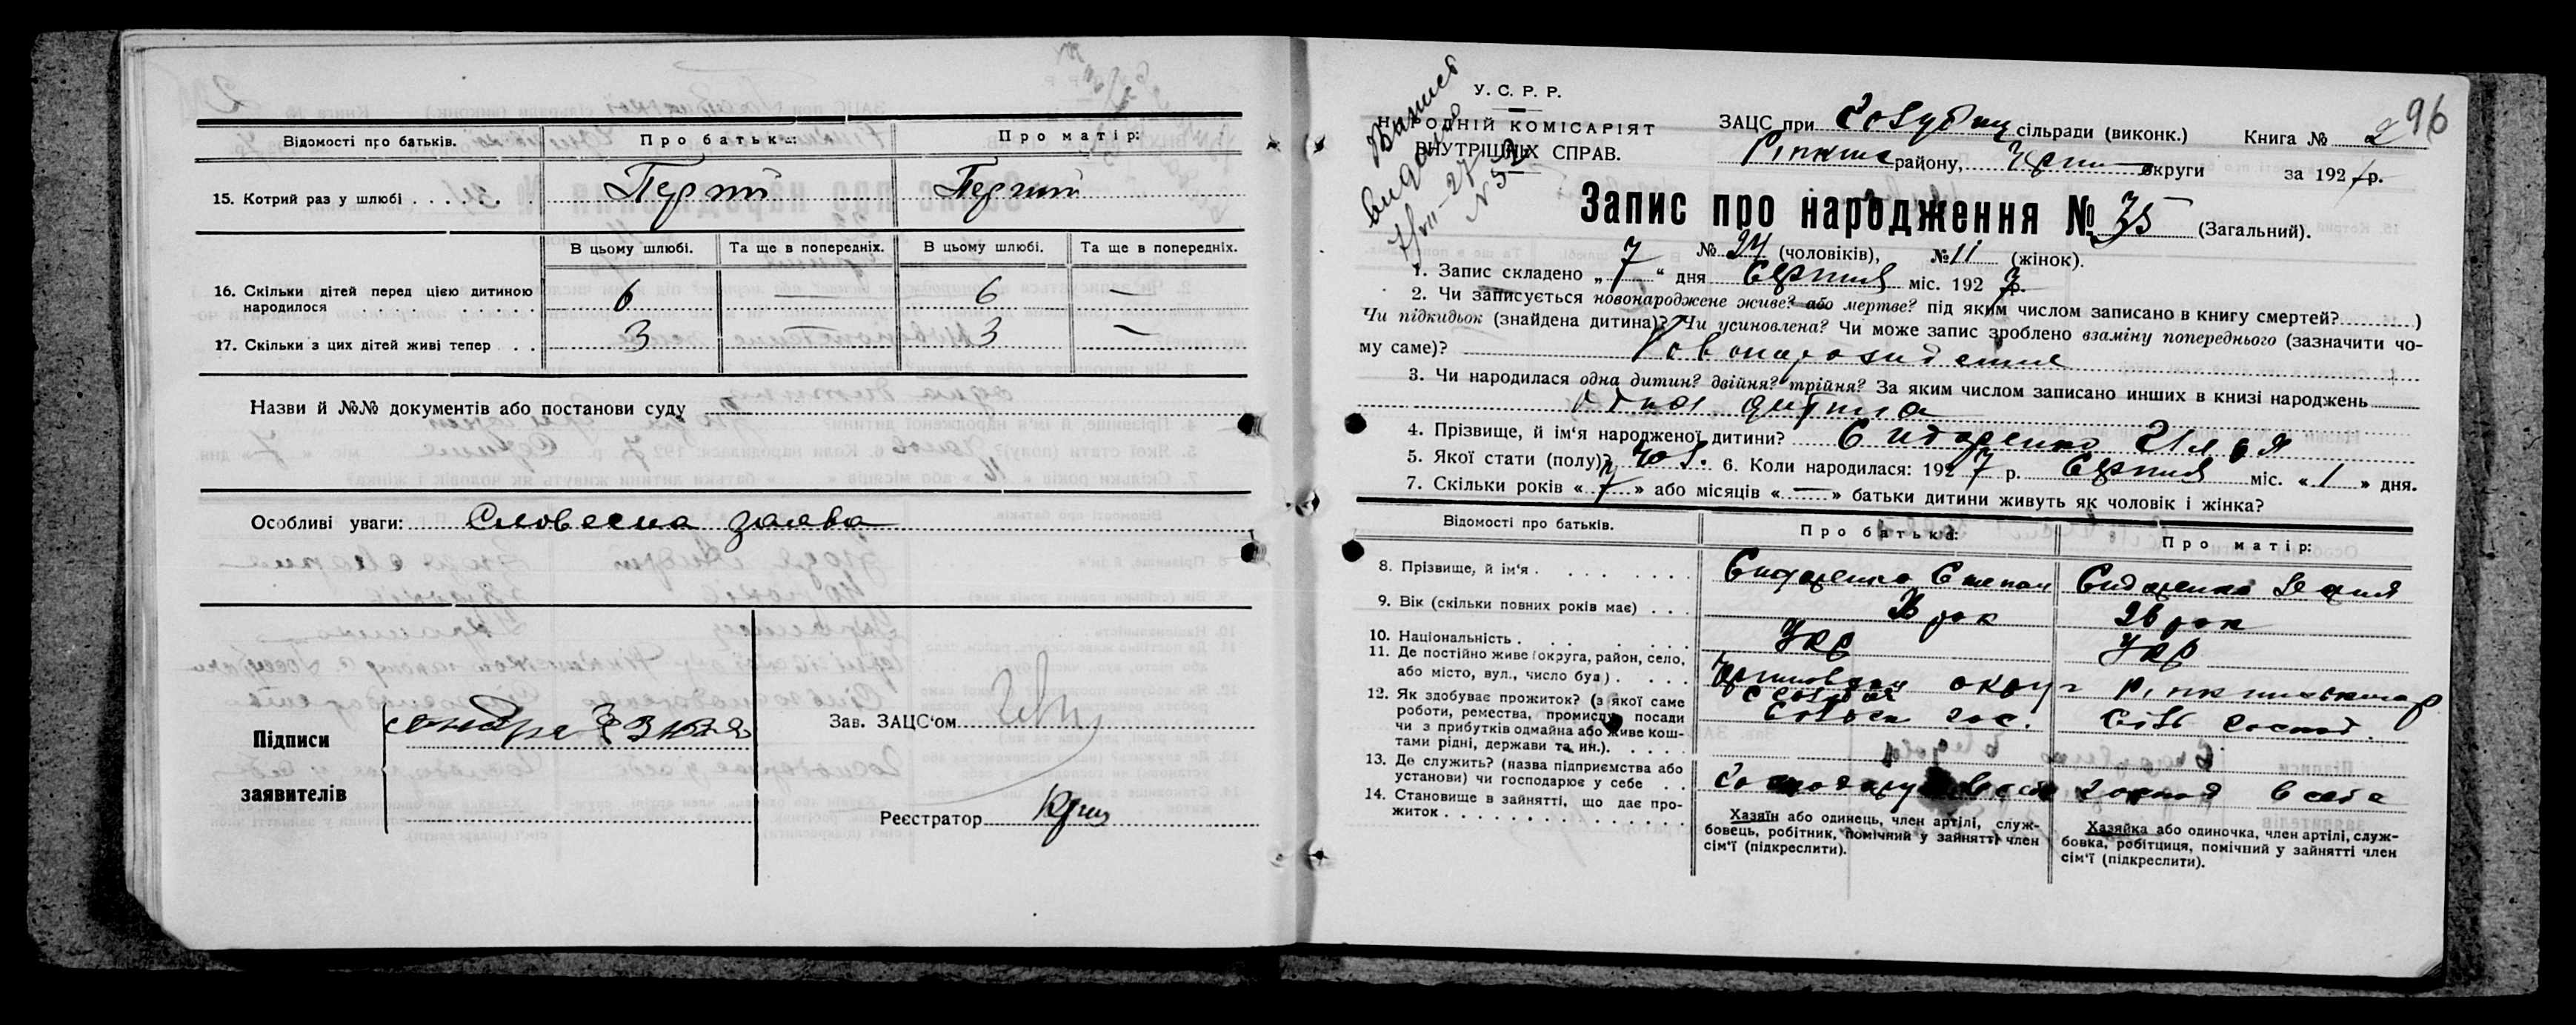 Відомості про батьків.
Про батька:
Про матір:
15. Котрий раз у шлюбі
Перший
Перший
В цьому шлюбі.
Та ще в попередніх.
В цьому шлюбі.
Та ще в попередніх.
16. Скільки дітей перед цією дитиною
народилося
6
—
6
—
17. Скільки з цих дітей живі тепер
3
3
—
Назви й №№ документів або постанови суду
Особливі уваги: Словесна заява
Підписи
заявителів
Зав. ЗАЦС'ом
Реєстратор
96
У. С. Р. Р.
НАРОДНІЙ КОМІСАРІЯТ
ВНУТРІШНІХ СПРАВ.
ЗАЦС при сільради (виконк.) Книга № 2
району, округи за 192 р.
Запис про народження № 35 (Загальний).
№ 24 (чоловіків), № 11 (жінок).
1. Запис складено „ 7 “ дня Серпня міс. 192 7 р.
2. Чи записується новонароджене живе? або мертве? під яким числом записано в книгу смертей? )
Чи підкидьок (знайдена дитина)? Чи усиновлена? Чи може запис зроблено взаміну попереднього (зазначити чо-
му саме)?
3. Чи народилася одна дитин? двійня? трійня? За яким числом записано инших в книзі народжень
одна дитина
4. Прізвище, й ім'я народженої дитини? Сидоренко Илья
5. Якої стати (полу)? чол. 6. Коли народилася: 192 7 р. Серпня міс. « 1 » дня.
7. Скільки років « 7 » або місяців « — » батьки дитини живуть як чоловік і жінка?
Відомості про батьків.
Про батька:
Про матір:
8. Прізвище, й ім'я
Сидоренко Степан
Сидоренко
9. Вік (скільки повних років має)
рок
26 рок
10. Національність
Укр
Укр
11. Де постійно живе (округа, район, село,
або місто, вул., число буд)
12. Як здобуває прожиток? (з якої саме
роботи, ремества, промислу, посади
чи з прибутків одмайна або живе кош-
тами рідні, держави та ин.).
13. Де служить? (назва підприємства або
установи) чи господарює у себе
14. Становище в зайнятті, що дає про-
житок
Хазяїн або одинець, член артілі, служ-
бовець, робітник, помічний у зайнятті член
сім'ї (підкреслити).
Хазяйка або одиночка, член артілі, служ-
бовка, робітниця, помічний у зайнятті член
сім'ї (підкреслити).